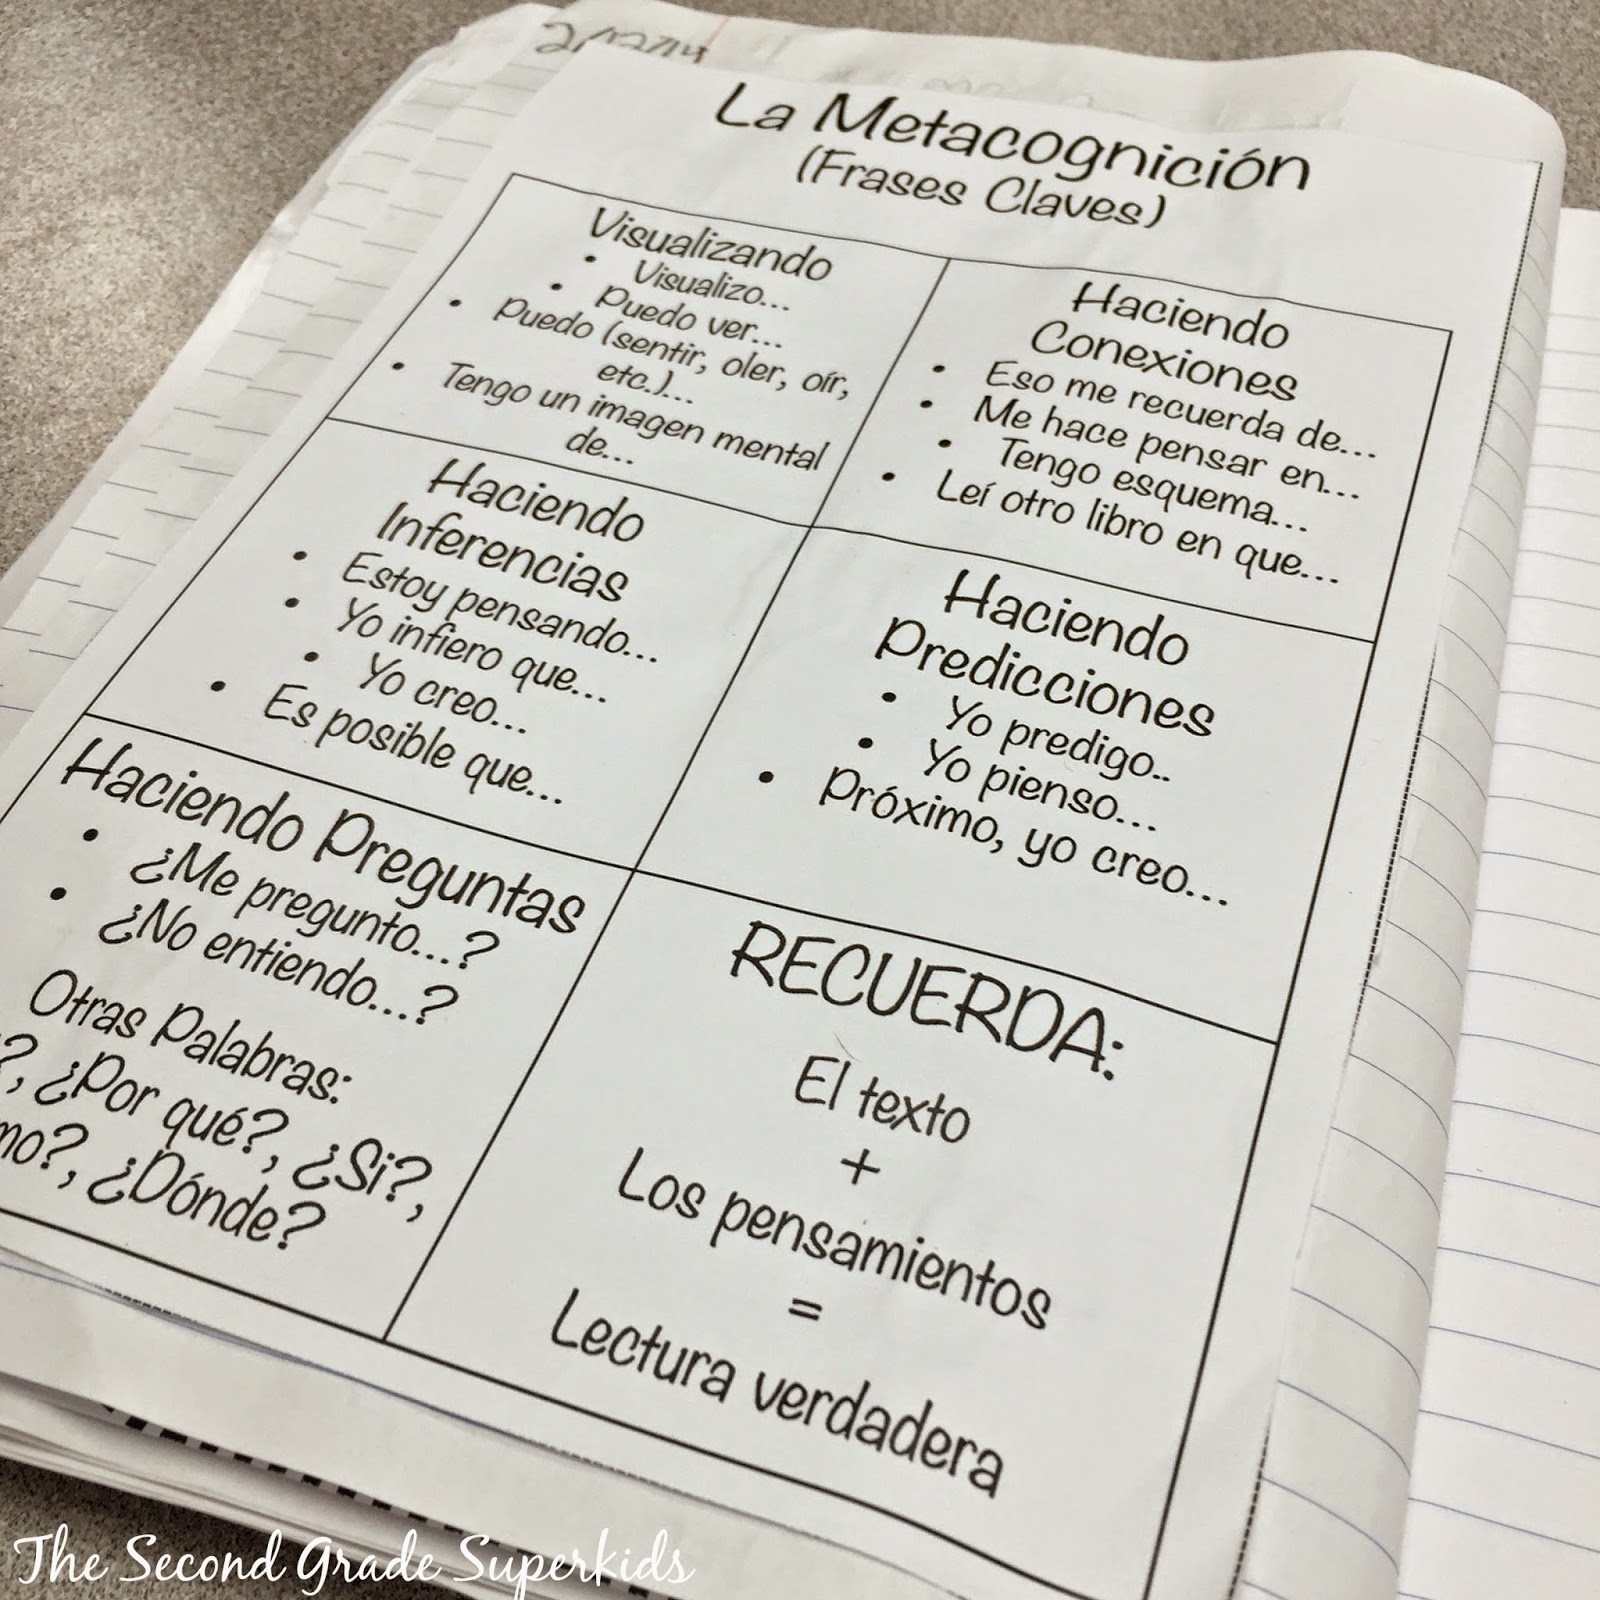 La Metacognición
(Frases Claves)
Visualizando
• Visualizo...
• Puedo ver...
• Puedo (sentir, oler, oír,
etc.)...
• Tengo un imagen mental
de...
Haciendo
Conexiones
• Eso me recuerda de...
• Me hace pensar en...
• Tengo esquema...
• Leí otro libro en que...
Haciendo
Inferencias
• Estoy pensando...
• Yo infiero que...
• Yo creo...
• Es posible que...
Haciendo
Predicciones
• Yo predigo..
• Yo pienso...
• Próximo, yo creo...
Haciendo Preguntas
• ¿Me pregunto...?
• ¿No entiendo...?
Otras Palabras:
?, ¿Por qué?, ¿Si?,
mo?, ¿Dónde?
RECUERDA:
El texto
+
Los pensamientos
=
Lectura verdadera
The Second Grade Superkids